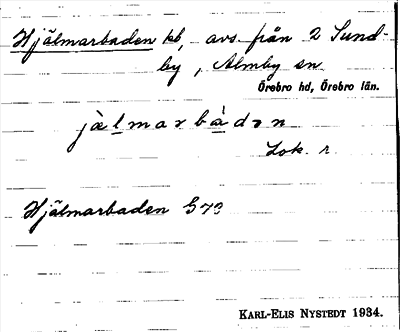 Hjälmarbaden kb, avs. från 2 Sund-
by, Almby sn
Örebro hd, Örebro län.
jæ̀lmarbàdən
Lok. r.
Hjälmarbaden G73
KARL-ELIS NYSTEDT 1934.